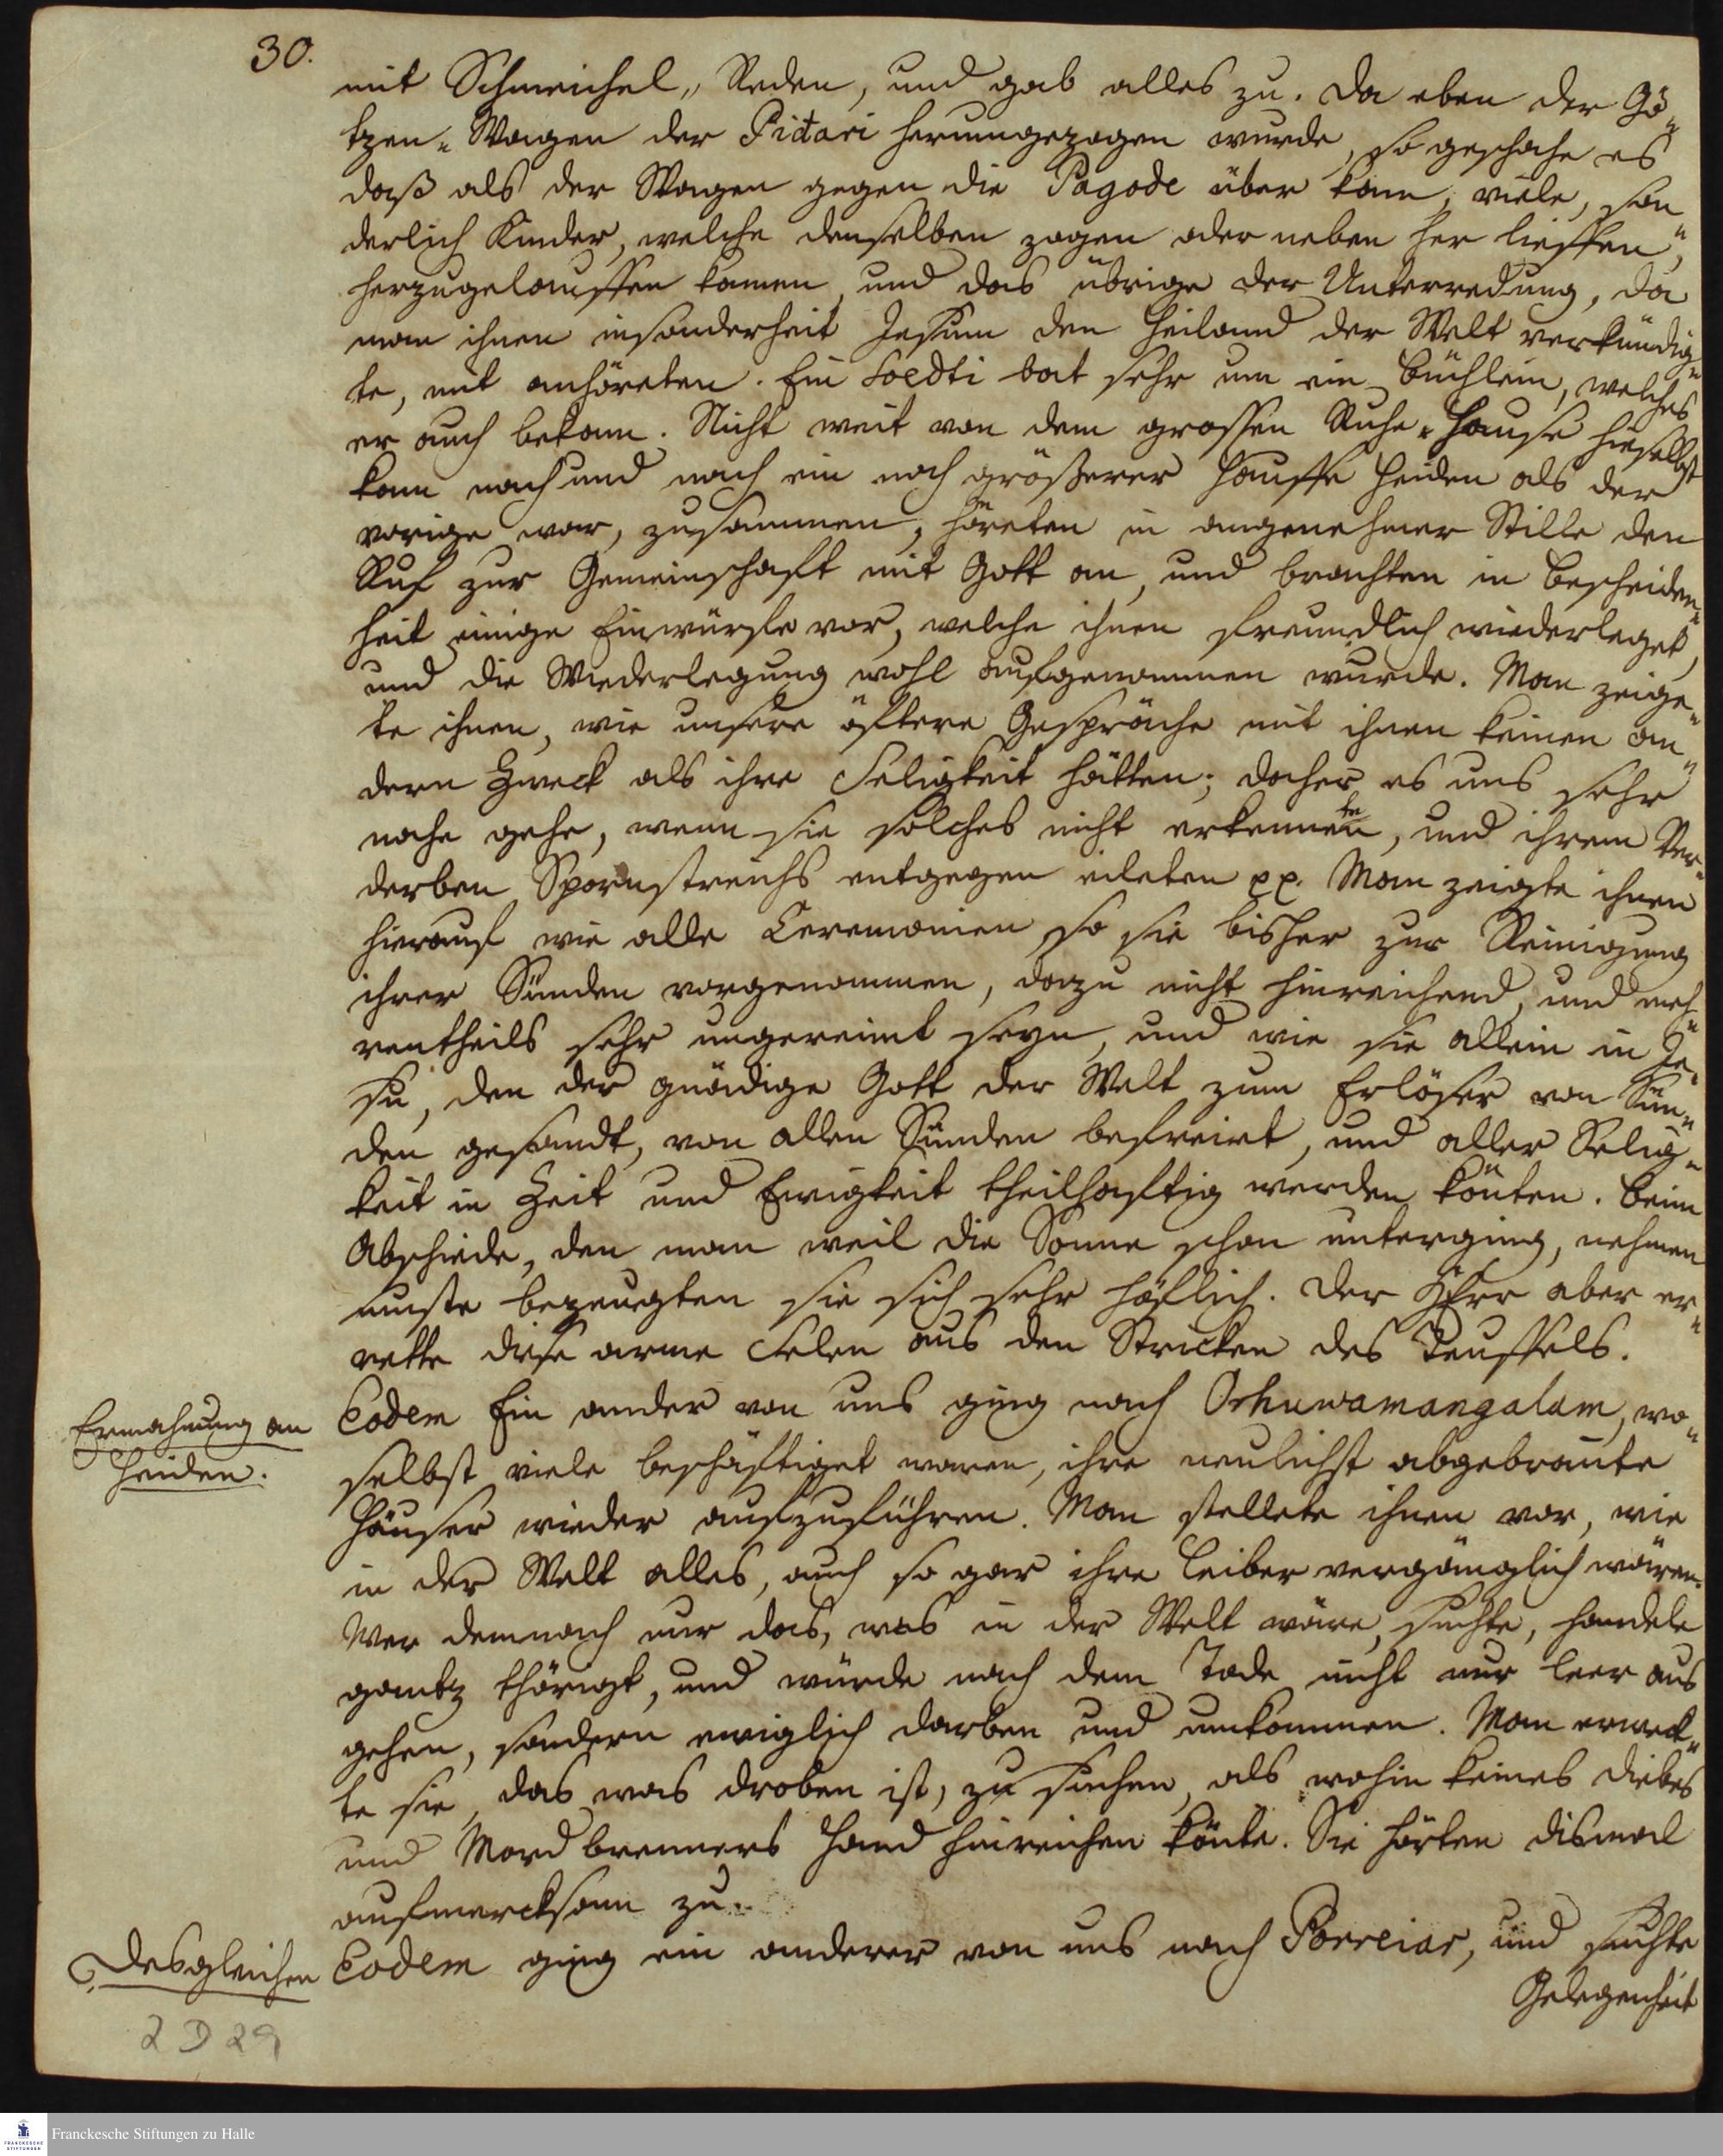 30.
mit Schmeichel„ Reden, und gab alles zu. Da eben der Gö„
tzen„ Wagen der Pidari herumgezogen wurde, so geschahe es
daß als der Wagen gegen die Pagode über kam, viele, son„
derlich Kinder, welche denselben zogen oder neben her lieffen,
herzugelauffen kamen, und das übrige der Unterredung, da
man ihnen insonderheit Jesum den Heiland der Welt verkündig„
te, mit anhöreten. Ein Soedti bat sehr um ein Büchlein, welches
er auch bekam. Nicht weit von dem grossen Ruhe„Hause hieselbst
kam nach und nach ein noch größerer Hauffe Heiden als der
vorige war, zusammen, höreten in angenehmer Stille den
Ruf zur Gemeinschaft mit Gott an, und brachten in Bescheiden„
heit einige Einwürfe vor, welche ihnen freundlich wiederleget,
und die Wiederlegung wohl aufgenommen wurde. Man zeige„
te ihnen, wie unsere öftere Gespräche mit ihnen keinen an„
dern Zweck als ihre Seligkeit hätten; daher es uns sehr
nahe gehe, wenn sie solches nicht erkenneten, und ihrem Ver„
derben Spornstreichs entgegen eileten pp. Man zeigte ihnen
hierauf wie alle Ceremonien so sie bisher zur Reinigung
ihrer Sünden vorgenommen, dazu nicht hinreichend, und meh„
rentheils sehr ungereimt seyn, und wie sie allein in Je„
su, den der gnädige Gott der Welt zum Erlöser von Sün„
den gesandt, von allen Sünden befreiet, und aller Selig„
keit in Zeit und Ewigkeit theilhaftig werden könten. Beim
Abschiede, den man weil die Sonne schon unterging, nehmen
muste bezeugten sie sich sehr höflich. Der HErr aber er„
rette diese arme Selen aus den Stricken des Teuffels.
Ermahnung an
Heiden.
Eodem Ein ander von uns ging nach Orhuwamangalam, wo„
selbst viele beschäftiget waren, ihre neulichst abgebrante
Häuser wieder aufzuführen. Man stellete ihnen vor, wie
in der Welt alles, auch so gar ihre Leiber vergänglich wären.
Wer demnach nur das, was in der Welt wäre, suchte, handele
gantz thörigt, und würde nach dem Tode nicht nur leer aus
gehen, sondern ewiglich darben und umkommen. Man erweck„
te sie, das was droben ist, zu suchen, als wohin keines Diebes
und Mordbrenners Hand hinreichen könte. Sie hörten dismal
aufmercksam zu.
Desgleichen
Eodem ging ein anderer von uns nach Porreiar, und suchte
Gelegenheit
2 D 29
FRANCKESCHE STIFTUNGEN
Franckesche Stiftungen zu Halle